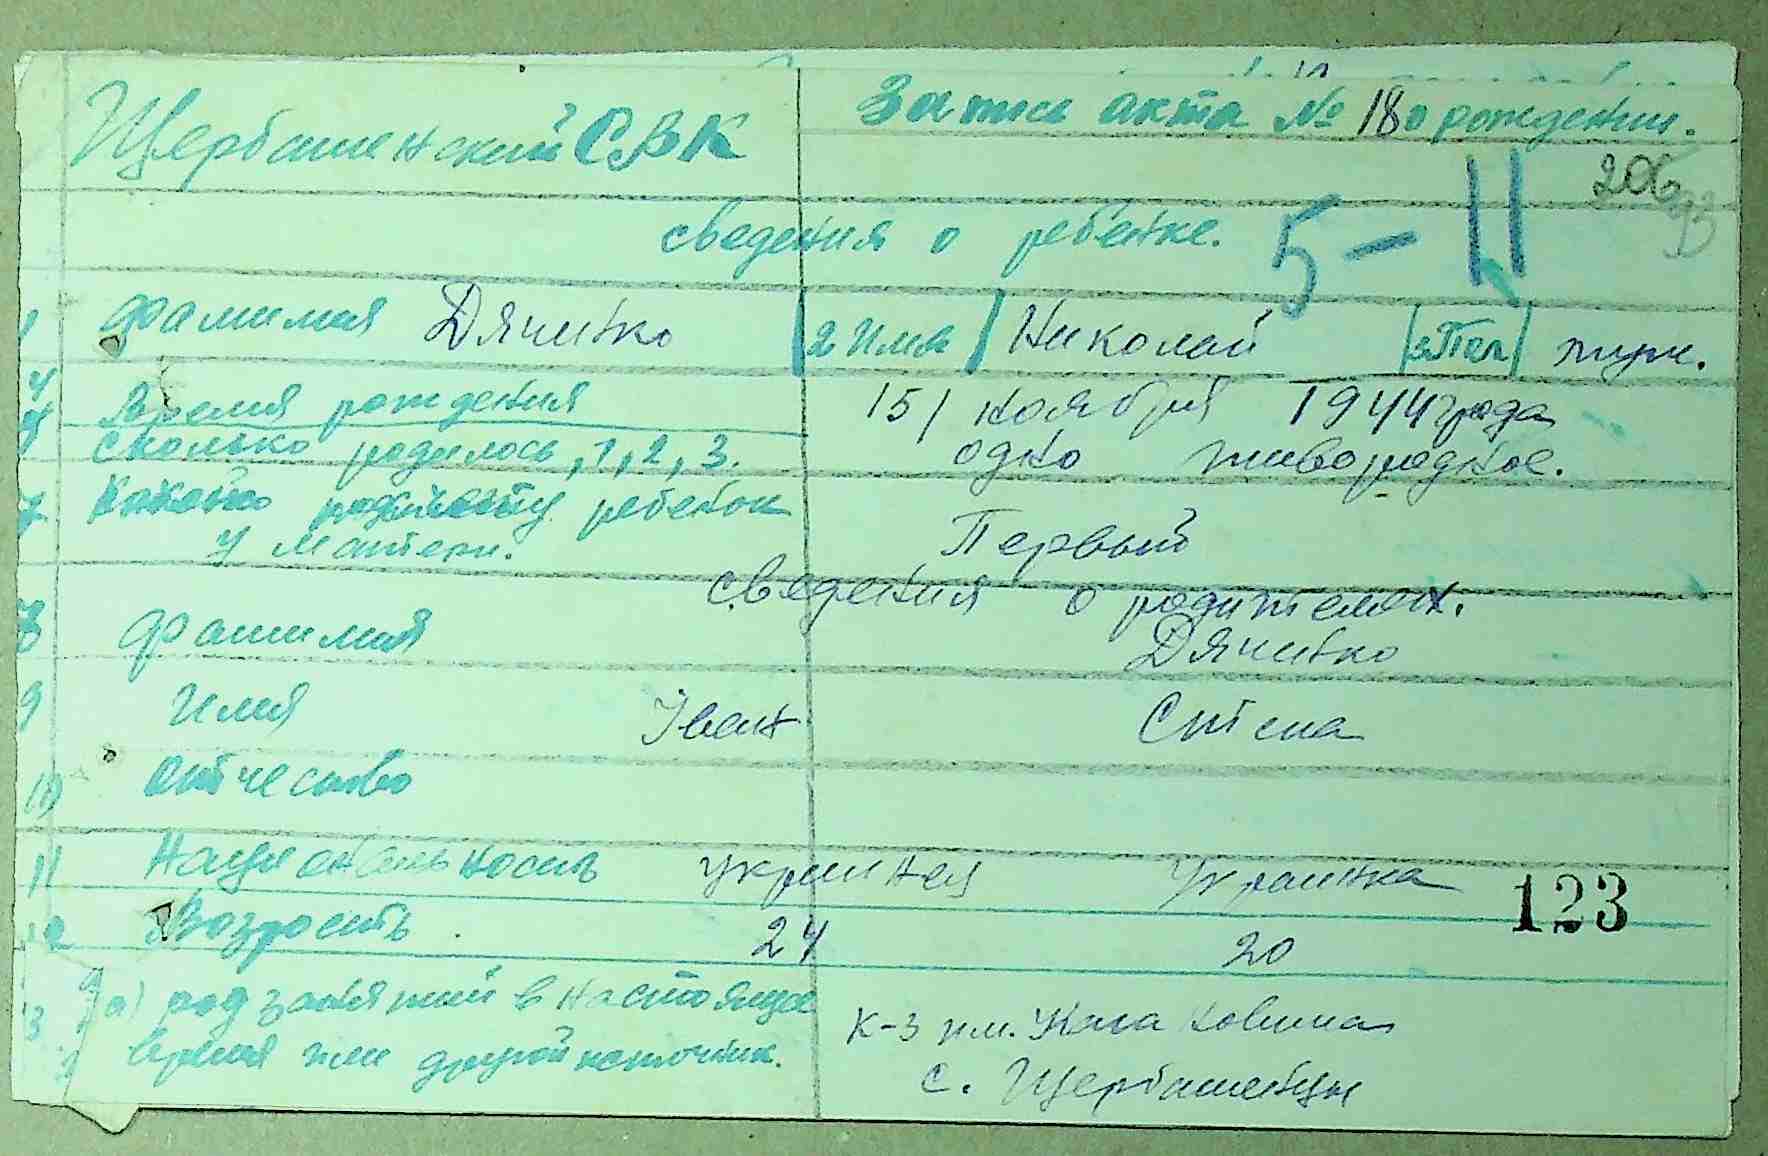 Щербашенский СВК
Запись акта № 18 о рождении.
206
93
сведения о ребенке. 5-11
1 фамилия Дяченко 2 Имя Николай 3 Пол муж.
4 Время рождения 15/ ноября 1944 года
5 Сколько родилось, 1, 2, 3. одно живородное.
7 ребенок
у матери. Первый
сведения о родителях.
8 фамилия Дяченко
9 Имя Іван Степа
10 Отчество
11 Национальность Украинец Украинка
123
12 Возрость 24 20
13 а) род занятий в настоящее к-з им. Кага новича
время или другой источник. с. Щербашенцы